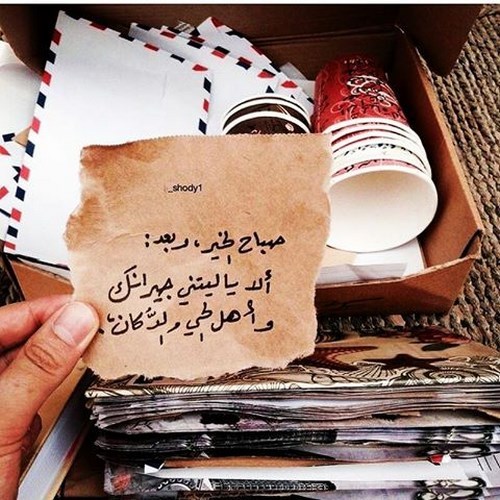 _shody1
صباح الخير، وبعد:
ألا ياليتني جيرانك
وأهل الحي والدّكان".